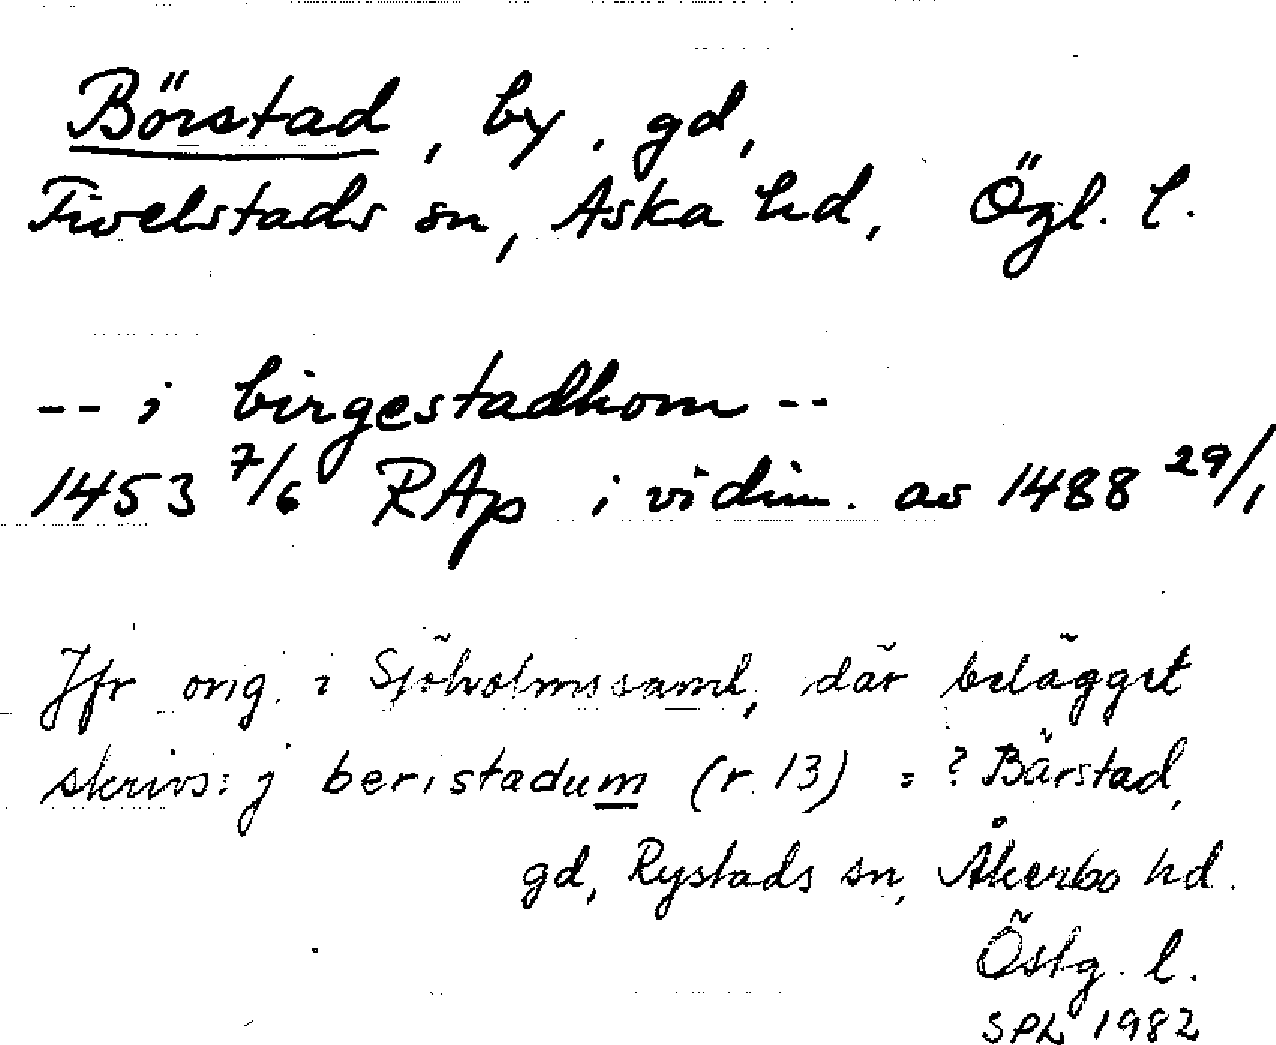 Börstad, by. gd,
Fivelstads sn, Aska hd, Ögl. l.
-- i birgestadhom --
1453 7/6 RAp i vidim. av 1488 29/1
Jfr orig. i Sjöholmssaml, där belägget
skrivs: j beristadum (r. 13) = ? Bärstad,
gd, Rystads sn, Åkerbo hd.
Östg. l.
SPL 1982